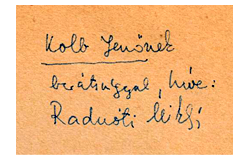 Kolb Jenőnek
barátsággal, híve:
Radnóti Miklós